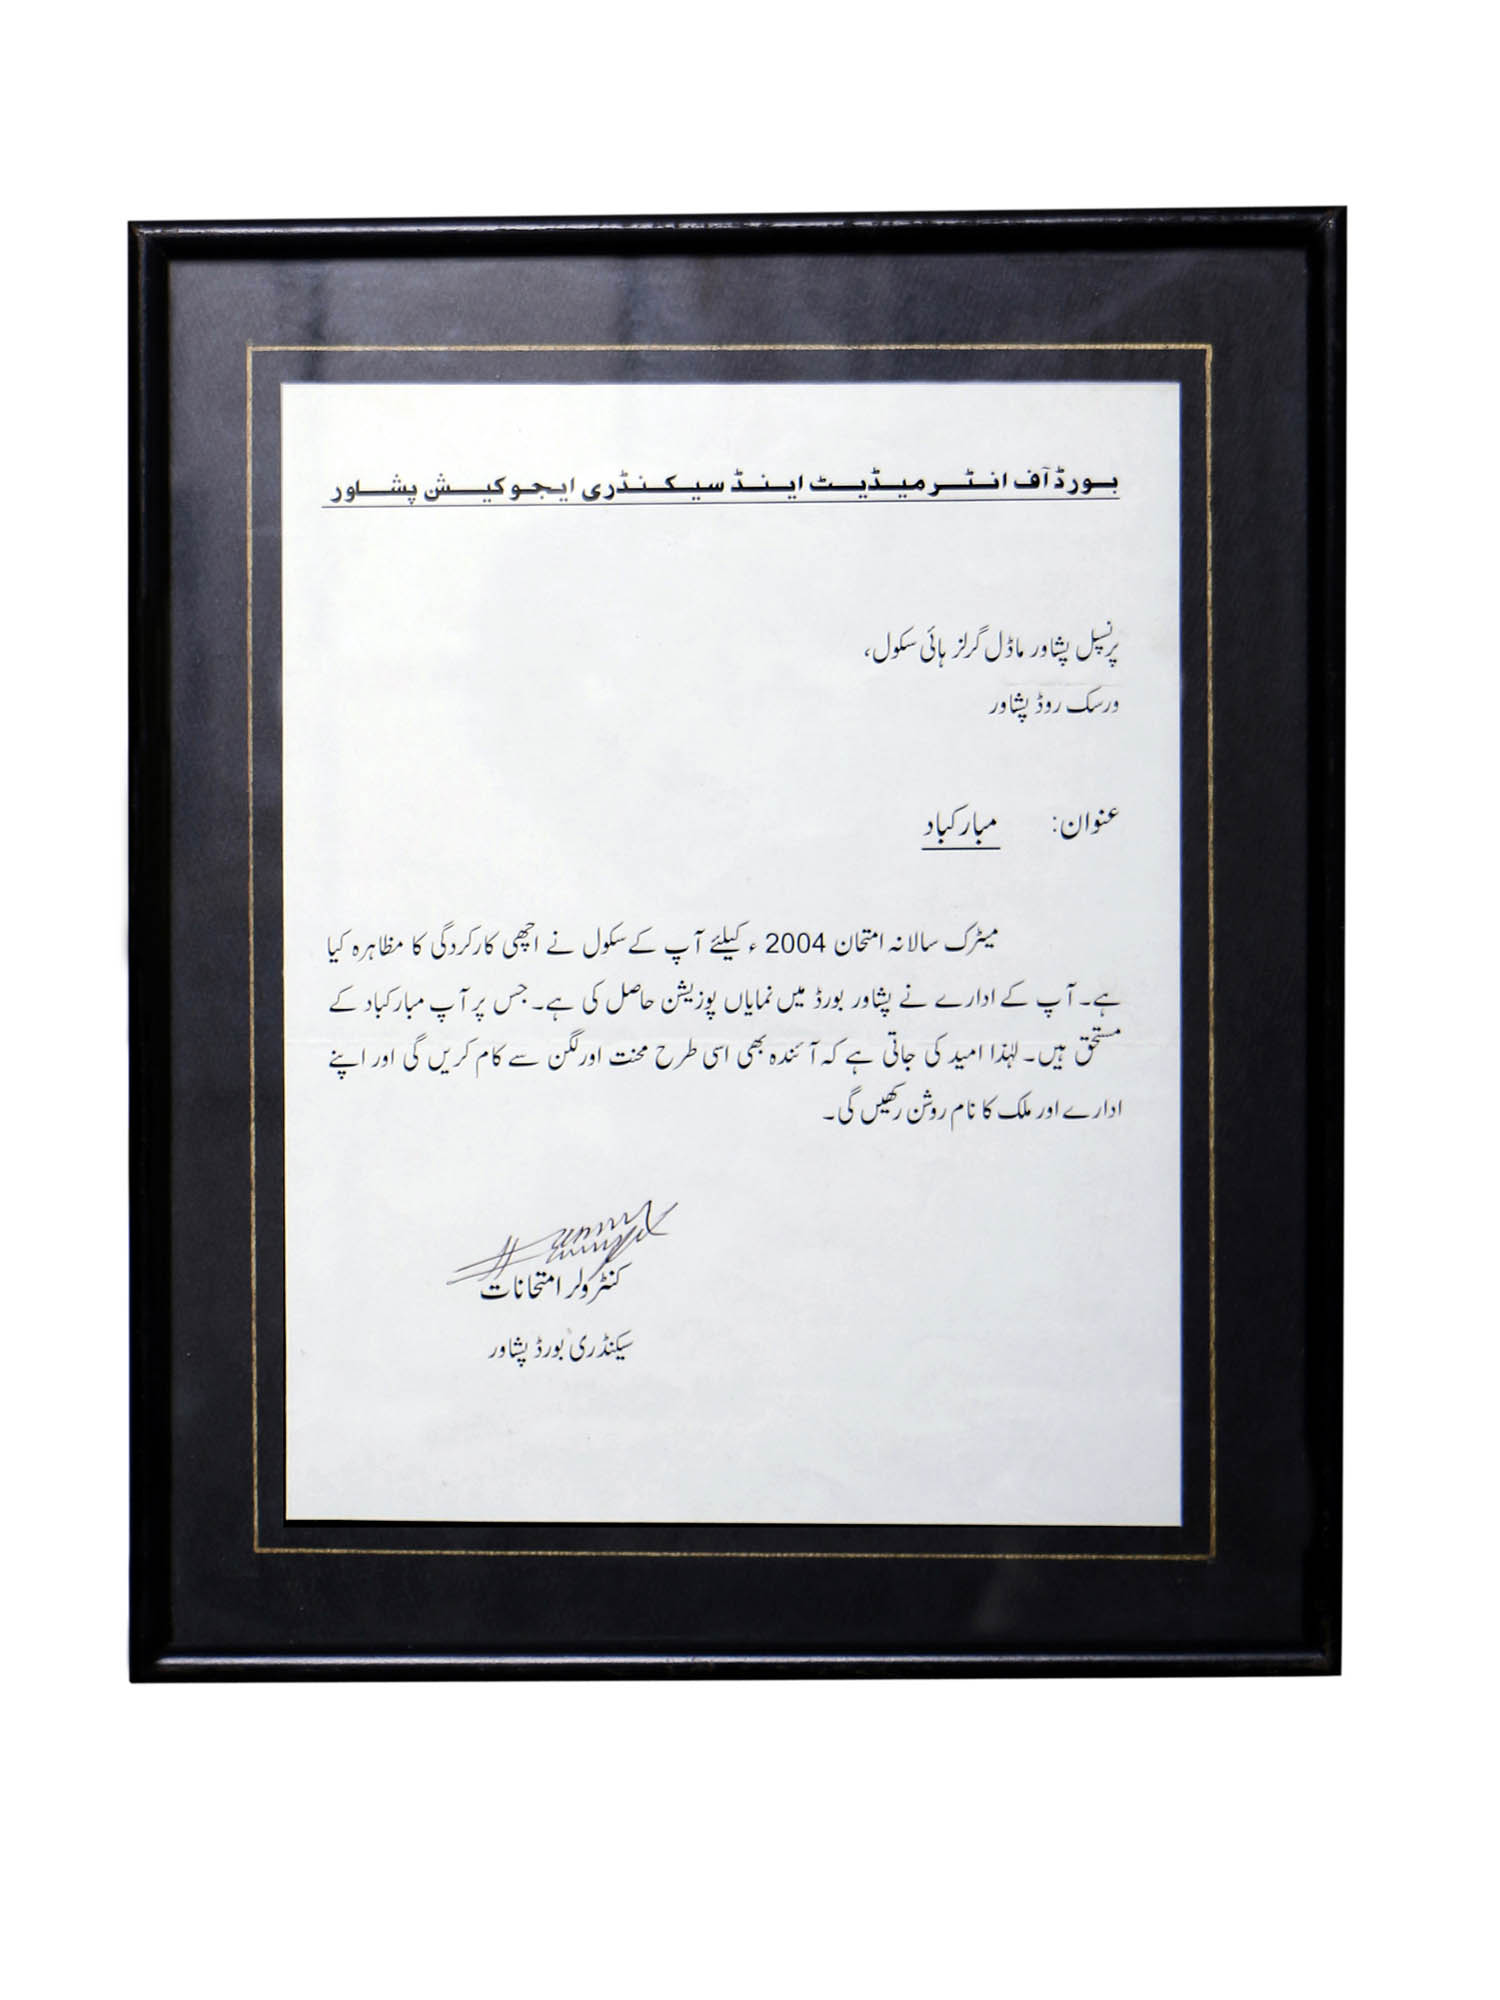 بورڈ آف انٹرمیڈیٹ اینڈ سیکنڈری ایجوکیشن پشاور
پرنسپل پشاور ماڈل گرلز ہائی سکول،
ورسک روڈ پشاور
عنوان: مبارکباد
میٹرک سالانہ امتحان 2004 ء کیلئے آپ کے سکول نے اچھی کارکردگی کا مظاہرہ کیا
ہے۔ آپ کے ادارے نے پشاور بورڈ میں نمایاں پوزیشن حاصل کی ہے۔ جس پر آپ مبارکباد کے
مستحق ہیں۔ لہٰذا امید کی جاتی ہے کہ آئندہ بھی اسی طرح محنت اور لگن سے کام کریں گی اور اپنے
ادارے اور ملک کا نام روشن رکھیں گی۔
کنٹرولر امتحانات
سیکنڈری بورڈ پشاور